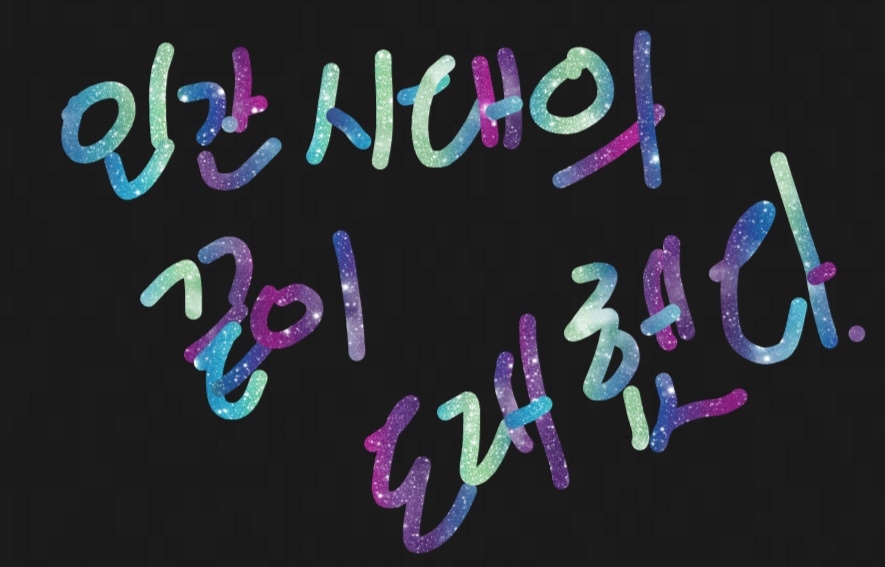 인간 시대의
끝이
도래했다.